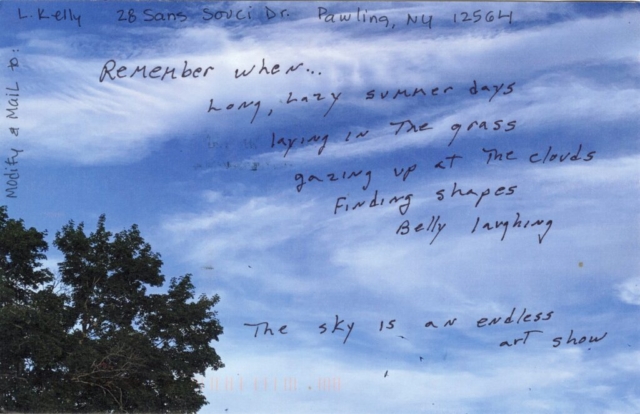 L. Kelly 28 Sans Souci Dr. Pawling, NY 12564
Modify & Mail to:
Remember when...
Long, Lazy summer days
laying in The grass
gazing up at The clouds
Finding shapes
Belly laughing
The sky is an endless
art show